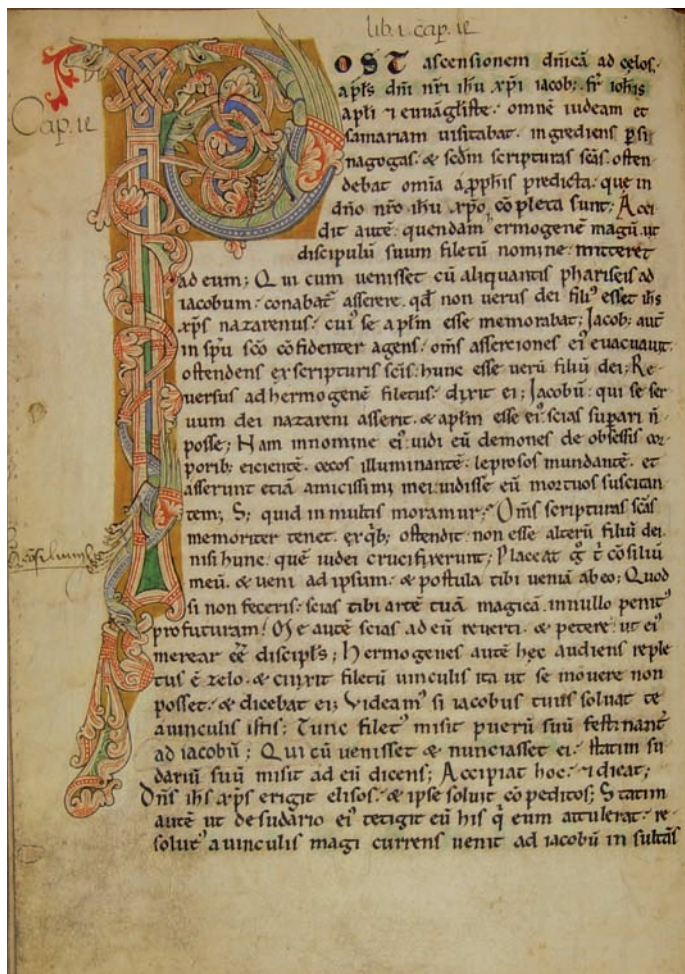 lib. i. cap. ix
Cap. ix
POST ascensionem dñicã ad cęlos.
apl̃s dñi nr̃i ihũ xp̃i iacob; fr̃ ioh̃is
apl̃i ⁊ euuãgl̃iste. omnẽ iudeam et
samariam uisitabat. ingrediens p̱ si
nagogas. & scd̃m scripturas scãs. osten
debat om̃ia a p̱ph̃is predicta. que in
dño nr̃o ihũ xp̃o cõpleta sunt; Acci
dit autẽ. quendam ermogenẽ magũ. ut
discipulũ suum filetũ nomine mitteret
ad eum; Qui cum uenisset cũ aliquantis phariseis ad
iacobum. conabat᷑ asserere. qđ non uerus dei fili᷒ esset ih̃s
xp̃s nazarenus. cui᷒ se apl̃m esse memorabat; Jacob; aut̃
in sp̃u scõ cõfidenter agens. om̃s asserciones ei᷒ euacuauit.
ostendens ex scripturis scĩs. hunc esse uerũ filiũ dei; Re
uersus ad hermogenẽ filetus. dixit ei; Jacobũ. qui se ser
uum dei nazareni asserit. & apl̃m esse ei᷒. scias sup̱ari ñ
posse; Nam in nomine ei᷒ uidi eũ demones de obsessis cor
porib; eicientẽ. cęcos illuminantẽ. leprosos mundantẽ. et
asserunt etiã amicissimi mei uidisse eũ mortuos suscitan
tem; S; quid in multis moramur; Om̃s scripturas scãs
memoriter tenet. ex q̃b; ostendit. non esse alterũ filiũ dei.
nisi hunc. quẽ iudei crucifixerunt; Placeat g̃ t̃ cõsiliũ
meũ. & ueni ad ipsum. & postula tibi ueniã ab eo; Quod
si non feceris. scias tibi artẽ tuã magicã in nullo penit᷒
profuturam; Me autẽ scias ad eũ reuerti. & petere ut ei᷒
merear eẽ discipl̃s; Hermogenes autẽ hec audiens reple
tus ẽ zelo. & cinxit filetũ uinculis ita ut se mouere non
posset. & dicebat ei; Videam᷒ si iacobus tuus soluat te
a uinculis istis; Tunc filet᷒ misit puerũ suũ festinant᷑
ad iacobũ; Qui cũ uenisset & nunciasset ei. statim su
dariũ suũ misit ad eũ dicens; Accipiat hoc. ⁊ dicat;
Dñs ih̃s xp̃s erigit elisos. & ipse soluit cõpeditos; Statim
autẽ ut de sudario ei᷒ tetigit eũ his q̃ eum attulerat. re
solut᷒ a uinculis magi currens uenit ad iacobũ insultãs